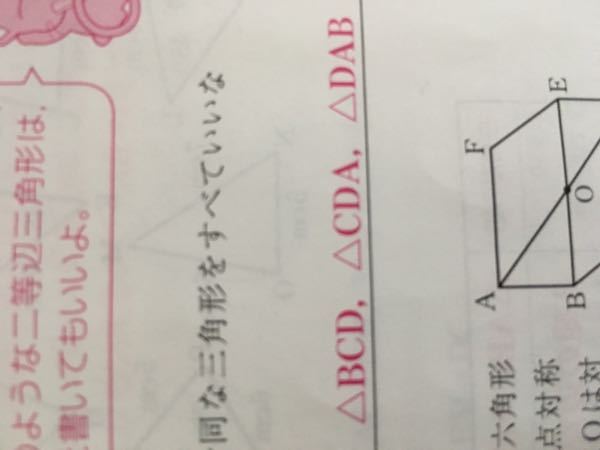 のような二等辺三角形は,
書いてもいいよ。
同な三角形をすべていいな
△BCD, △CDA, △DAB
A
B
E
F
O
六角形
点対称
Oは対